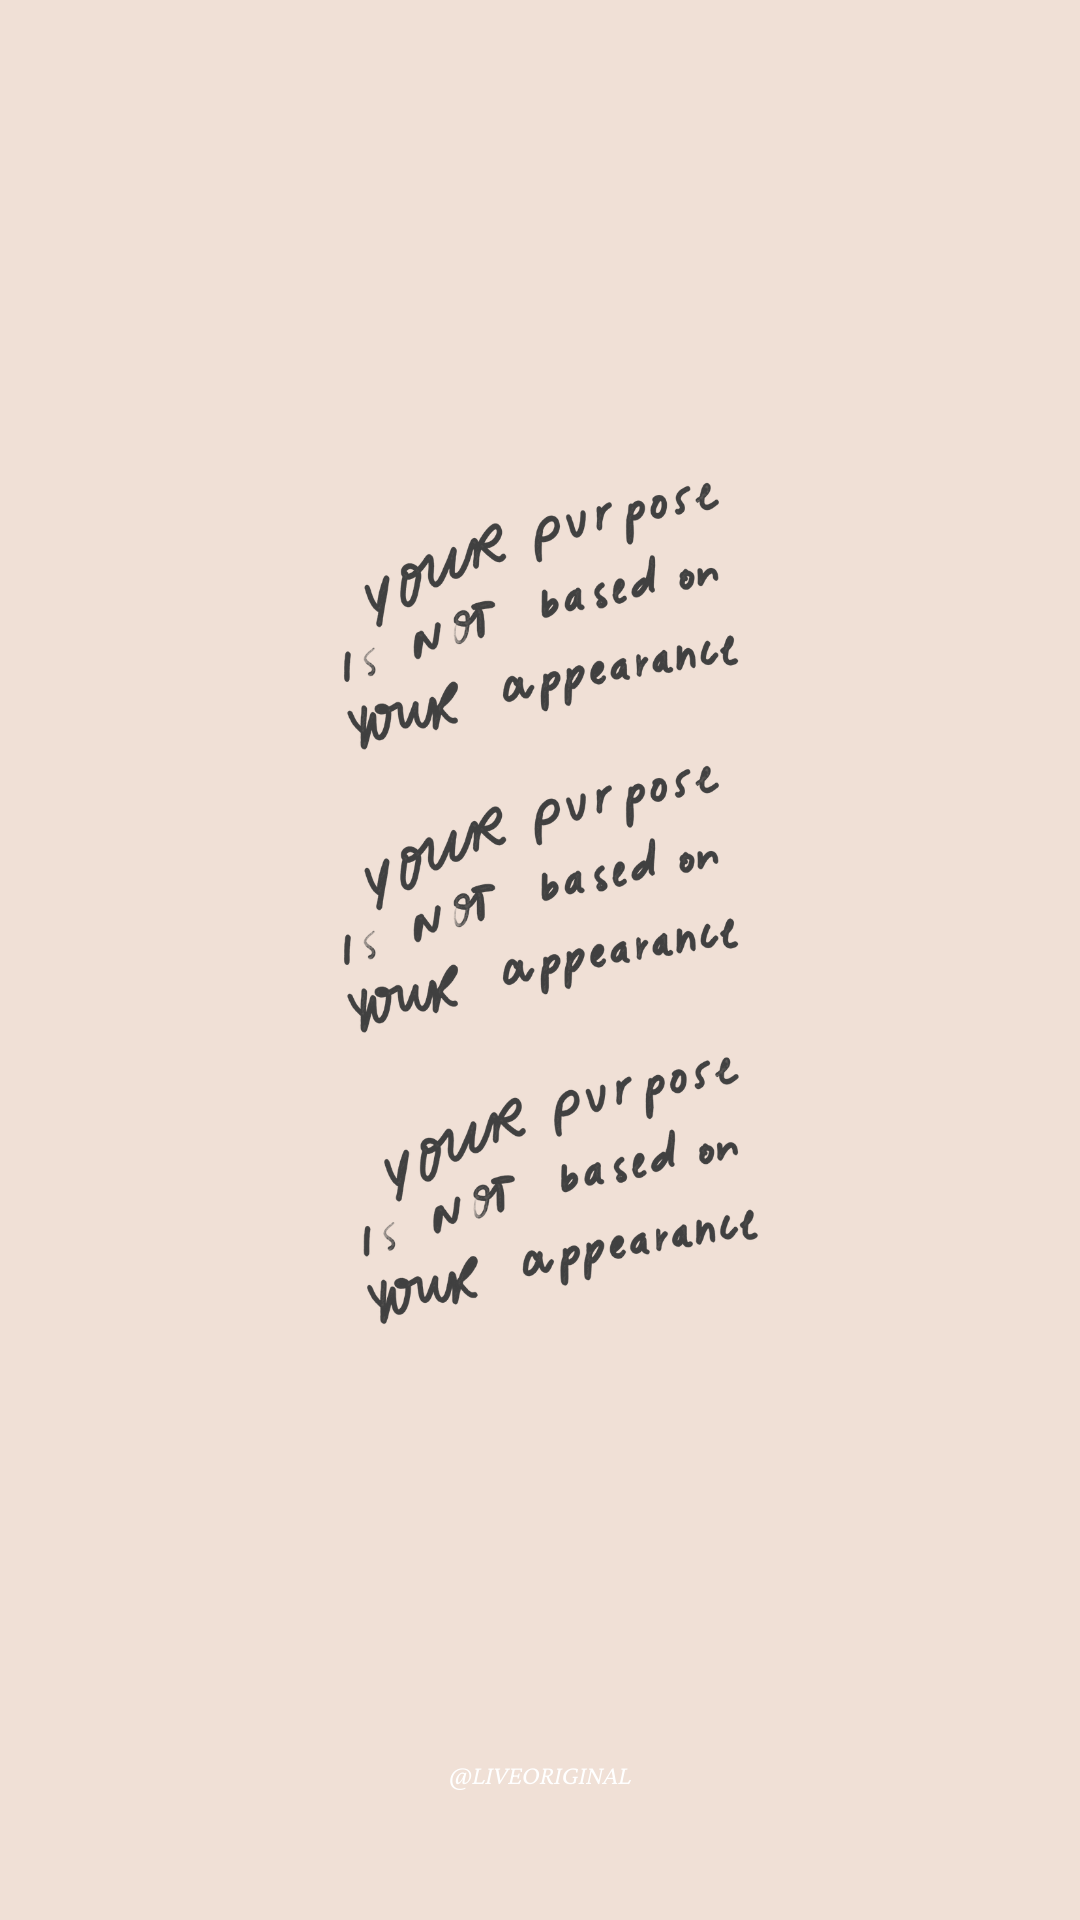 your purpose
is NOT based on
your appearance
your purpose
is NOT based on
your appearance
your purpose
is NOT based on
your appearance
@LIVEORIGINAL